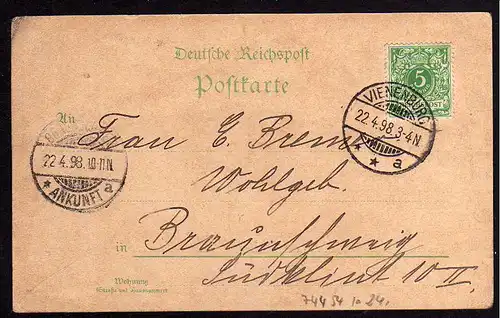 Deutsche Reichspost
Postkarte
5
VIENENBURG
22.4.98.3-4N
* * a
An
Frau E. Brem
22.4.98.10-11N.
* ANKUNFT a
Wohlgeb.
in Braunschweig
Südklint 10 II.
Wohnung
(Straße und Hausnummer)